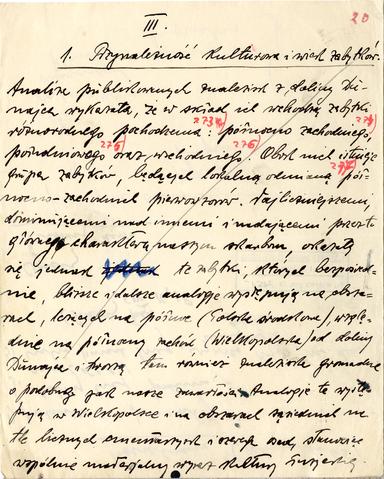 20
III.
1. Przynależność kulturowa i wiek zabytków.
Analiza publikowanych znalezisk z doliny Du-
najca wykazała, że w skład ich wchodzą zabytki
różnorodnego pochodzenia: 273a) północno zachodniego, 274)
południowego 275) oraz wschodniego. 276) Obok nich istnieje
grupa zabytków, będących lokalną odmianą pół-
nocno-zachodnich pierwowzorów. Najliczniejszymi,
dominującymi nad innymi i nadającymi przeto
głównego charakteru naszym skarbom, okazały
się jednak te zabytki, których bezpośred-
nie, bliższe i dalsze analogie występują na obsza-
rach, leżących na północ (Polska środkowa), wzglę-
dnie na północny zachód (Wielkopolska) od doliny
Dunajca i tworzą tam również znaleziska gromadne
o podobnej jak nasze zawartości. Analogie te wystę-
pują w Wielkopolsce i na obszarach sąsiednich na
tle licznych cmentarzysk i szeregu osad, stanowiąc
wspólnie materialny wyraz kultury łużyckiej.